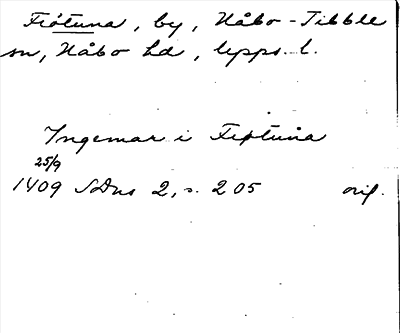 Fiötuna, by, Håbo-Tibble
sn, Håbo hd, Upps. l.
Ingemar i Fiþtuna
25/9
1409 SDns 2, s. 205 orig.